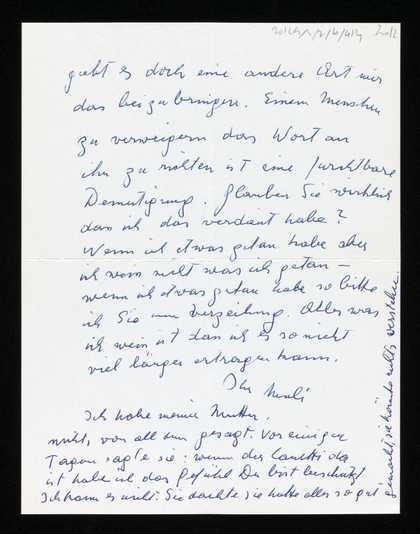 giebt es doch eine andere Art mir
das beizubringen. Einem Menschen
zu verweigern das Wort an
ihn zu richten ist eine furchtbare
Demütigung. Glauben Sie wirklich
dass ich das verdient habe?
Wenn ich etwas getan habe aber
ich weiss nicht was ich getan –
wenn ich etwas getan habe so bitte
ich Sie um Verzeihung. Alles was
ich weiss ist dass ich es so nicht
viel länger ertragen kann.
Ihr
Ich habe meiner Mutter
nichts von all dem gesagt. Vor einiger
Tagen sagte sie: wenn der Canetti da
ist habe ich das Gefühl Du bist beschützt
Ich kann es nicht. Sie dachte sie hätte alles so gut
gemacht, sie könnte nichts verstehen.